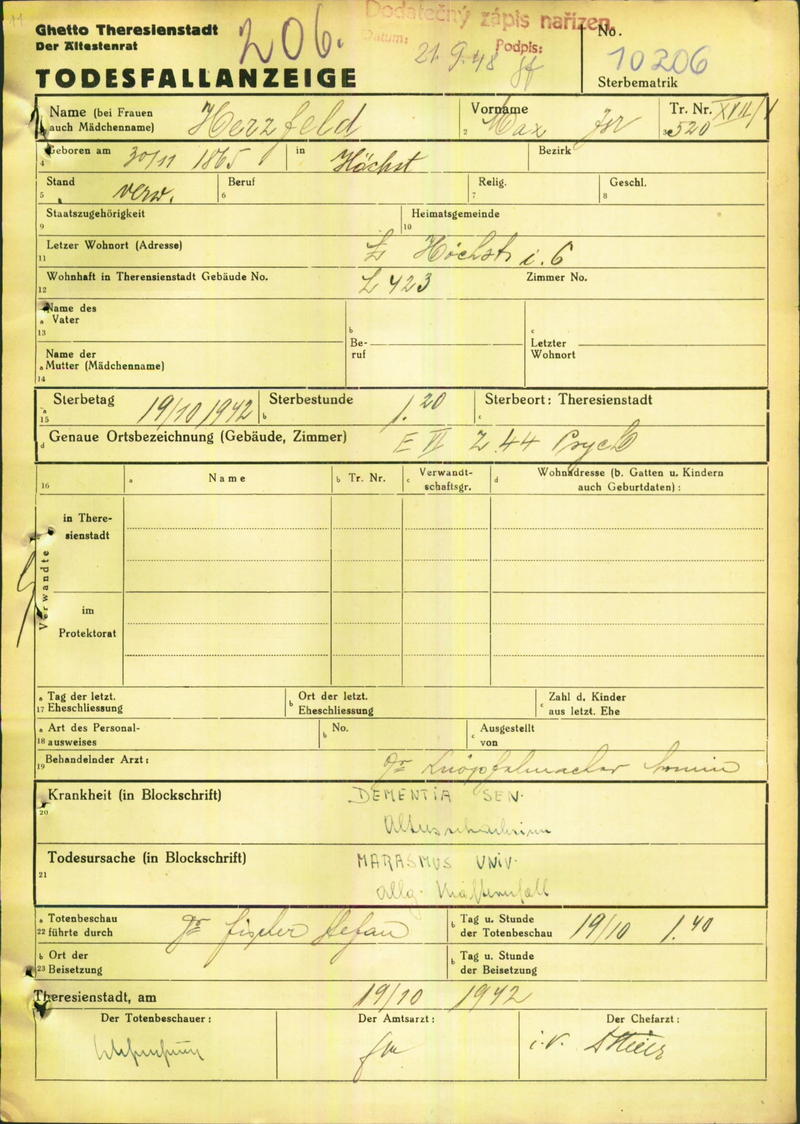 11
Ghetto Theresienstadt
Der Ältestenrat
TODESFALLANZEIGE
206.
Dodatečný zápis nařízen
Datum: 21.9.48 Podpis:
No.
10206
Sterbematrik
Name (bei Frauen auch Mädchenname) Herzfeld
2 Vorname Max Isr
3 Tr. Nr. XVII/1 520
4 Geboren am 30/11 1865 in Höchst Bezirk
5 Stand verw.
6 Beruf
7 Relig.
8 Geschl.
9 Staatszugehörigkeit
10 Heimatsgemeinde
11 Letzer Wohnort (Adresse) Höchst i.
12 Wohnhaft in Therensienstadt Gebäude No. L 423 Zimmer No.
a 13 Name des Vater
b Beruf
c Letzter Wohnort
a 14 Name der Mutter (Mädchenname)
a 15 Sterbetag 19/10 1942
b Sterbestunde 1.20
c Sterbeort: Theresienstadt
d Genaue Ortsbezeichnung (Gebäude, Zimmer) E VI Z 44
16 a Name
b Tr. Nr.
c Verwandtschaftsgr.
d Wohnadresse (b. Gatten u. Kindern auch Geburtdaten):
Verwandte
in Theresienstadt
im Protektorat
a 17 Tag der letzt. Eheschliessung
b Ort der letzt. Eheschliessung
c Zahl d. Kinder aus letzt. Ehe
a 18 Art des Personalausweises
b No.
c Ausgestellt von
19 Behandelnder Arzt: Dr Knöpfelmacher Armin
20 Krankheit (in Blockschrift) DEMENTIA SEN.
Altersschwachsinn
21 Todesursache (in Blockschrift) MARASMUS UNIV.
allg. Kräfteverfall
a 22 Totenbeschau führte durch Dr Fischer Stefan
b Tag u. Stunde der Totenbeschau 19/10 1.40
b 23 Ort der Beisetzung
b Tag u. Stunde der Beisetzung
Theresienstadt, am 19/10 1942
Der Totenbeschauer:
Der Amtsarzt:
Der Chefarzt:
i.V.